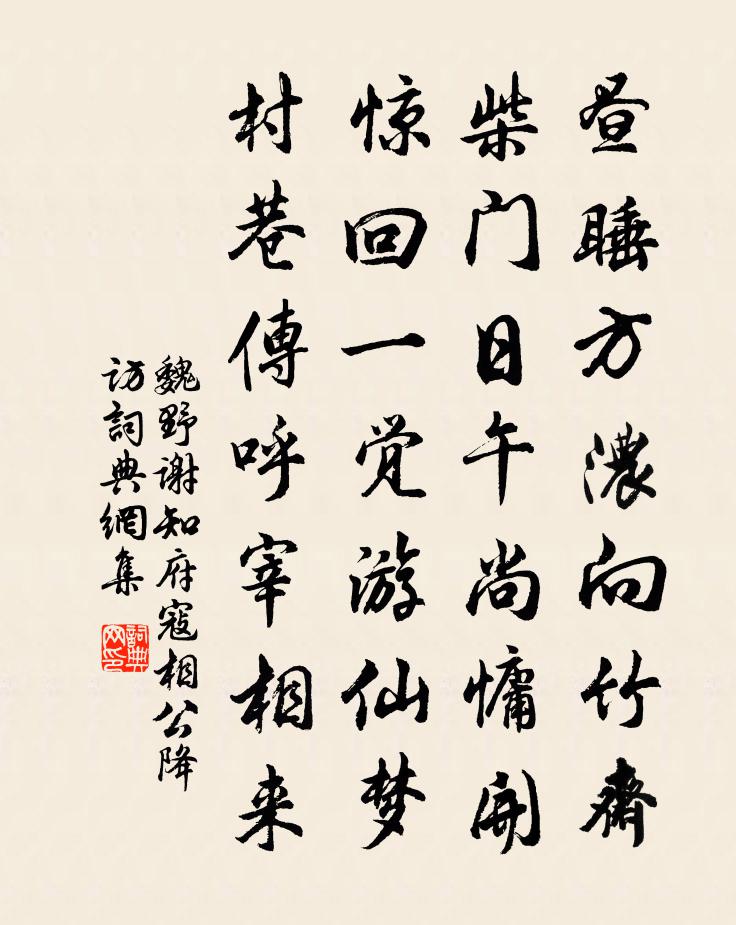 昼睡方濃向竹齋
柴门日午尚慵開
惊回一觉游仙梦
村巷傳呼宰相来
魏野谢知府寇相公降
访詞典網集
詞典網印